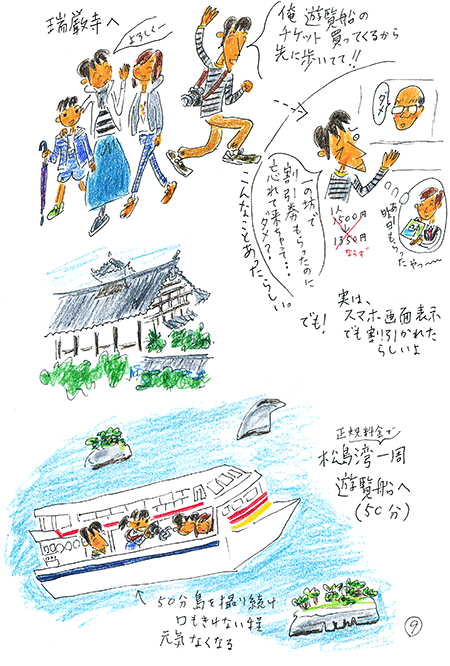 瑞巌寺へ
よろしくー
俺 遊覧船の
チケット 買ってくるから
先に歩いてて!!
ダメ
一の坊で
割引券もらったのに
忘れて来ちゃって…
ダメ?
こんなことあったらしい。
1人
1500円
1350円
ならず
昨日もらったやつ〜
でも!
実は、
スマホ画面表示
でも割引かれた
らしいよ
正規料金で
松島湾一周
遊覧船へ
(50分)
50分島を撮り続け
口もきけない程
元気なくなる
9